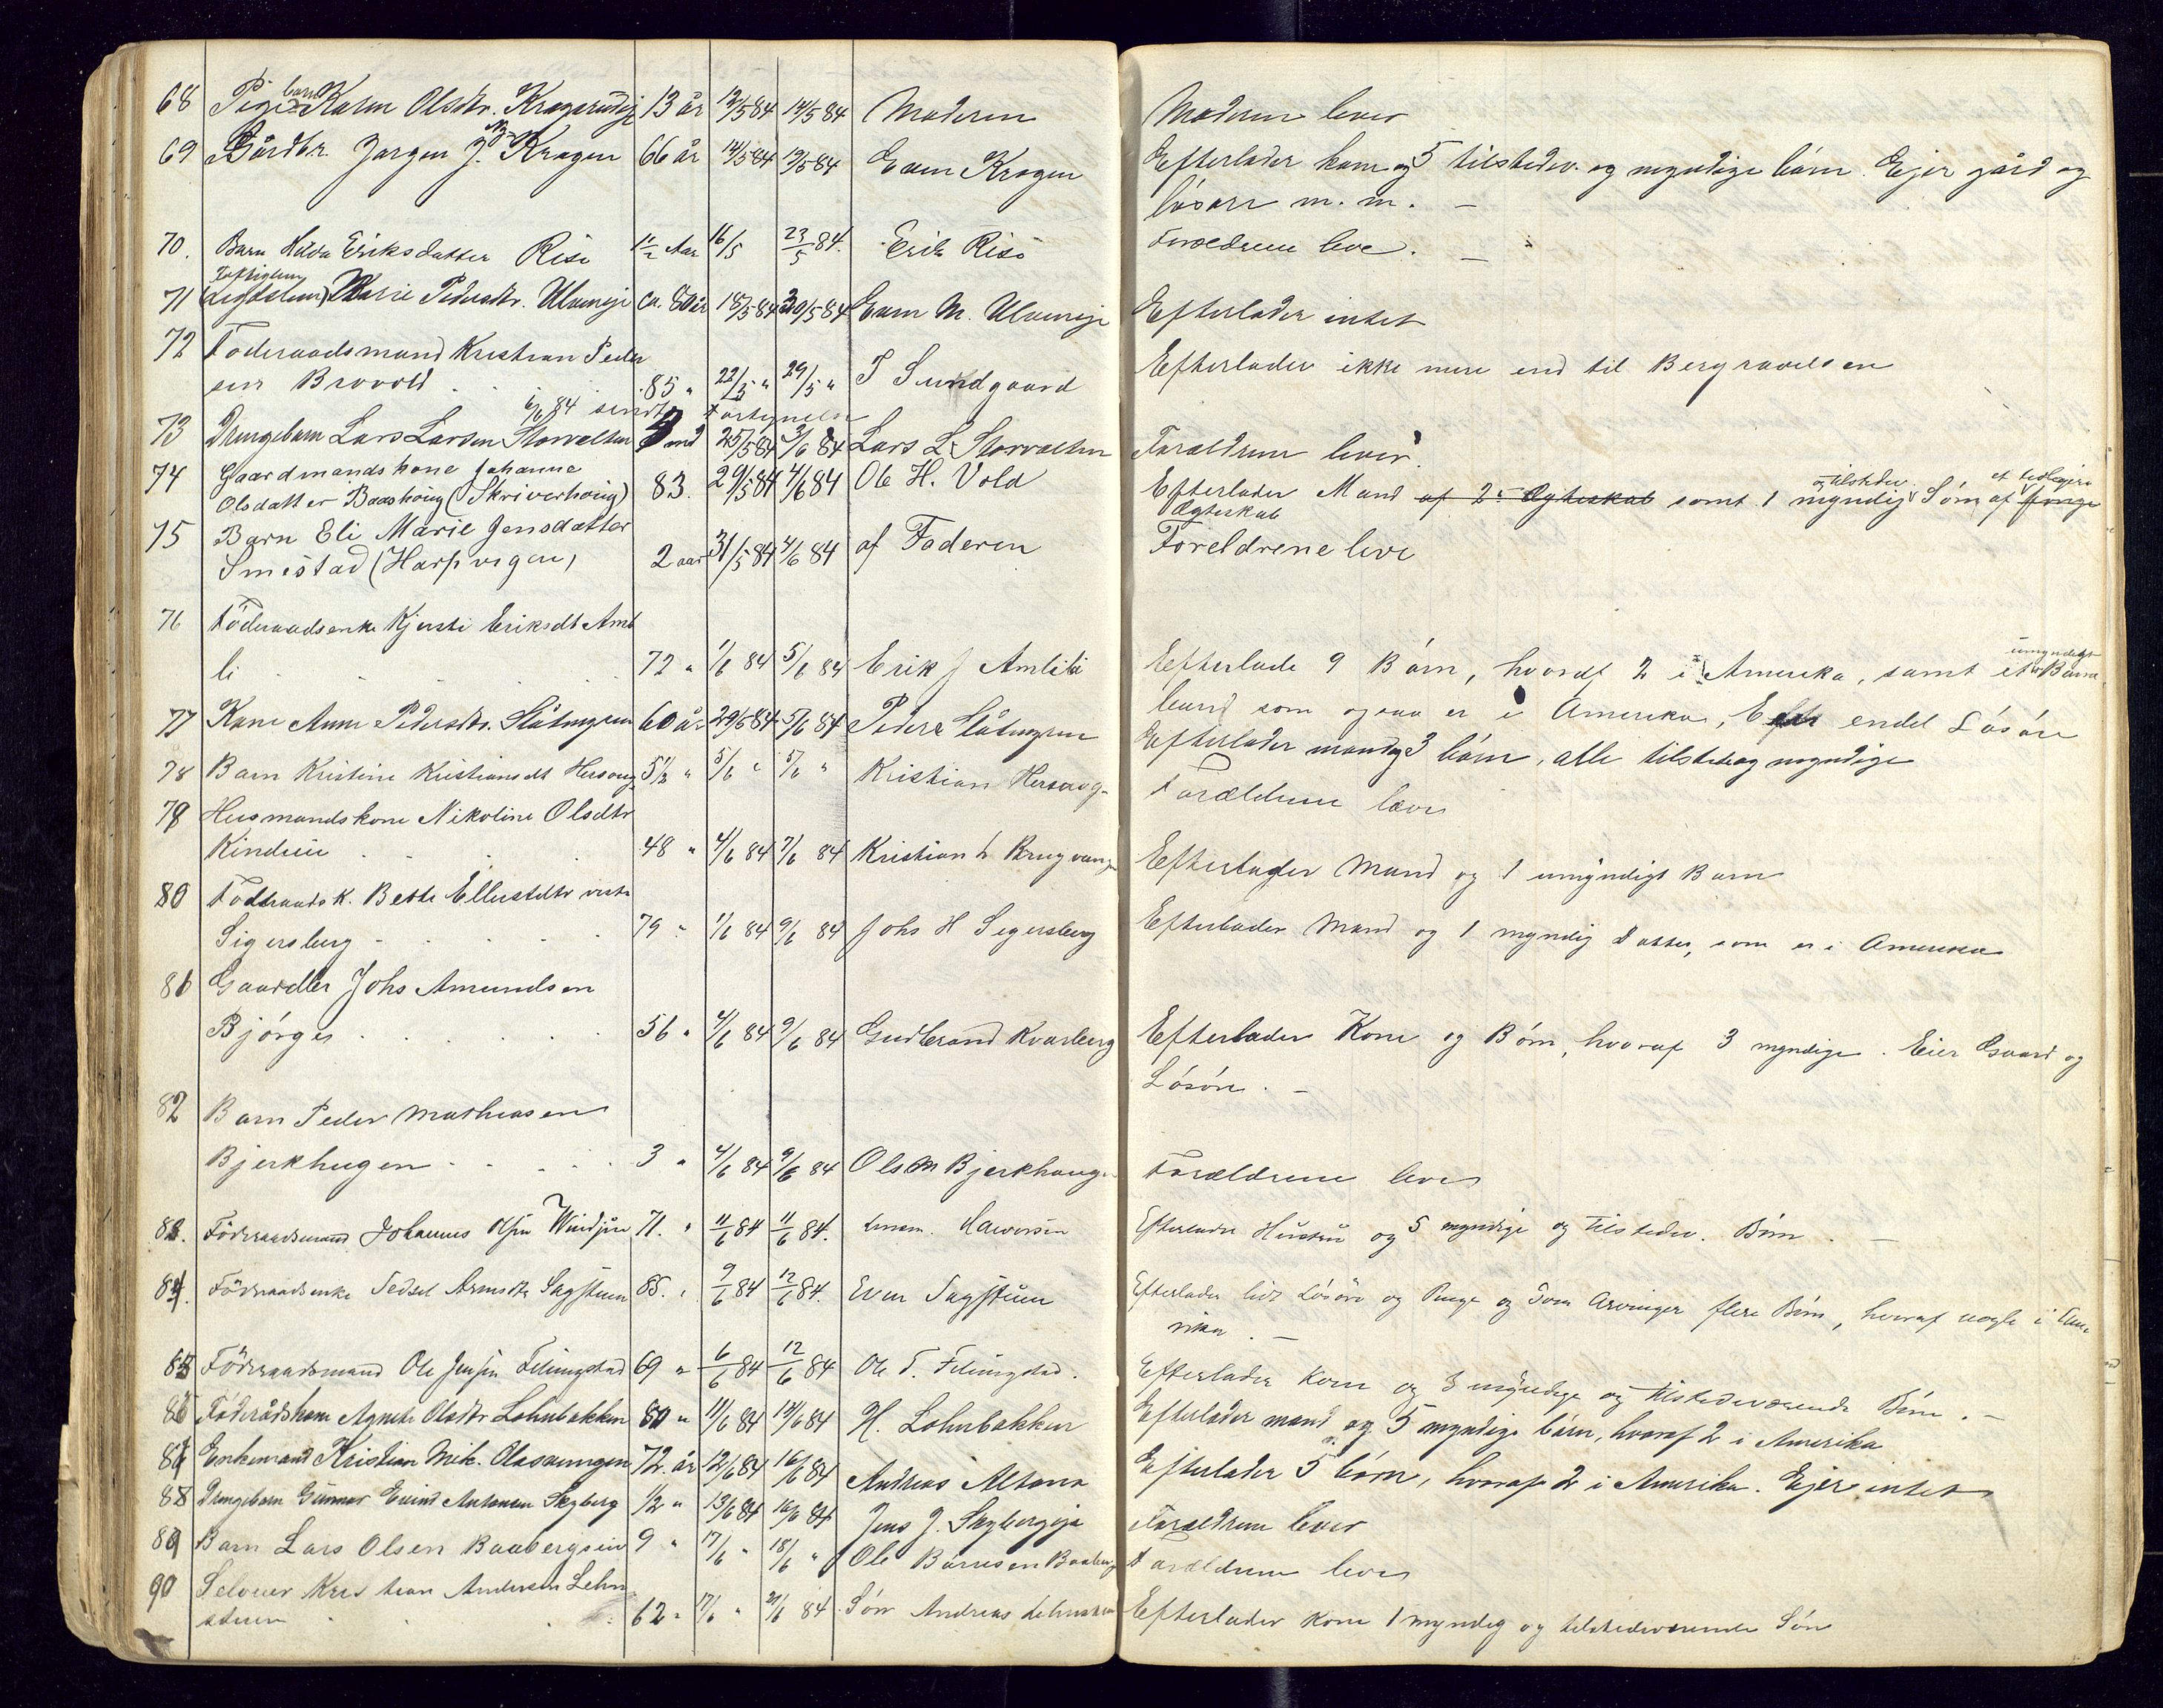 68 Pigebarn Karen Olsdtr. Kragerudeje 13 år 12/5 84 14/5 84 Moderen Moderen lever
69 Gårdbr. Jørgen J. Kragen 66 år 14/5 84 19/5 84 Even Kragen Efterlader kone og 5 tilstedev. og myndige børn. Ejer gård og
løsøre m. m. –
70. Barn Hilda Eriksdatter Rise 1/2 Aar 16/5 23/5 84. Erik Rise Forældrene leve. –
71 (Lægdslem) Marie Pedersdtr. Ulvneje ca. 80 år 18/5 84 30/5 84 Even M. Ulvneje Efterlader intet
72 Føderaadsmand Kristian Peder
sen Brovold . . . 85 " 22/5 " 29/5 " J Sundgaard Efterlader ikke mere end til Begravelsen
6/6 84 sendt Fortegnelse
73 Drengebarn Lars Larsen Storvolten 25/5 84 3/6 84 Lars L. Storvolten Forældrene lever.
74 Gaardmandskone Johanne
Olsdatter Baashøug (Skriverhøug) 83. 29/5 84 4/6 84 Ole H. Vold Efterlader Mand af 2. Ægteskab samt 1 myndig og tilstedev. Søn af et tidligere
Ægteskab
75 Barn Eli Marie Jensdatter
Smestad (Harpvigen) 2 aar 31/5 84 4/6 84 af Faderen Foreldrene leve
76 Föderaadsenke Kjersti Eriksdt Amb
li . . . 72 " 1/6 84 5/6 84 Erik J Amlili Efterlade 9 Børn, hvoraf 2 i Amerika, samt et umyndigt Barne
barn som ogsaa er i Amerika, endel Løsøre
77 Kone Anne Pedersdtr. Slåtmyren 60 år 29/5 84 5/6 84 Peder Slåtmyren Efterlader mand og 3 børn, alle tilstede og myndige
78 Barn Kristine Kristiansdt Hersoug 5 1/2 " 5/6 " 5/6 " Kristian Hersoug Forældrene leve
79 Husmandskone Nikoline Olsdtr
Kindlie . . . 48 " 4/6 84 7/6 84 Kristian Brugvangen Efterlader Mand og 1 umyndigt Barn
80 Föderaadsk. Berthe Ellefsdtr vestre
Sigersberg . . . 79 " 1/6 84 9/6 84 Johs H Segersberg Efterlader Mand og 1 myndig Datter, som er i Amerika
81 Gaardbr Johs Amundsen
Bjørge . . . 56 " 4/6 84 9/6 84 Gudbrand Kvarberg Efterlader Kone og Børn, hvoraf 3 myndige. Eier Gaard og
Løsøre. –
82 Barn Peder Mathiasen
Bjerkhugen . . . 3 " 4/6 84 9/6 84 Ols M Bjerkhaugen Forældrene leve
83. Föderaadsmand Johannes Olsen Windjue 71. " 11/6 84 11/6 84. Haavorsen Efterlader Hustru og 5 myndige og tilstedev. Børn. –
84. Föderaadsenke Sedsel Arnesdtr Sagstuen 85. " 9/6 84 12/6 84. Even Sagstuen Efterlader lidt Løsøre og Penge og som Arvinger flere Børn, hvoraf nogle i Ame
rika. –
85 Föderaadsmand Ole Jensen Flemgstad 69 " 6/6 84 12/6 84 Ole T. Flemgstad. Efterlader Kone og 3 myndige og tilstedeværende Børn. –
86 Føderådskone Agnete Olsdtr Lohnbakken 80 " 11/6 84 14/6 84 H. Lohnbakken Efterlader mand og 5 myndige børn, hvoraf 2 i Amerika
87 Enkemand Kristian Mik. Olasveengen 72 år 12/6 84 16/6 84 Andreas Altona Efterlader 5 børn, hvoraf 2 i Amerika. Ejer intet
88 Drengebarn Gunnar Evind Antonsen Skyberg 1/2 " 13/6 84 16/6 84 Jens J. Skybergeje Forældrene lever
89 Barn Lars Olsen Baabergseie 9 " 17/6 " 18/6 " Ole Baaberg Forældrene leve
90 Selveier Kristian Andersen Lehn
stuen . . . 62 " 17/6 " 21/6 84. Søn Andreas Lehnstuen Efterlader Kone 1 myndig og tilstedeværende Søn